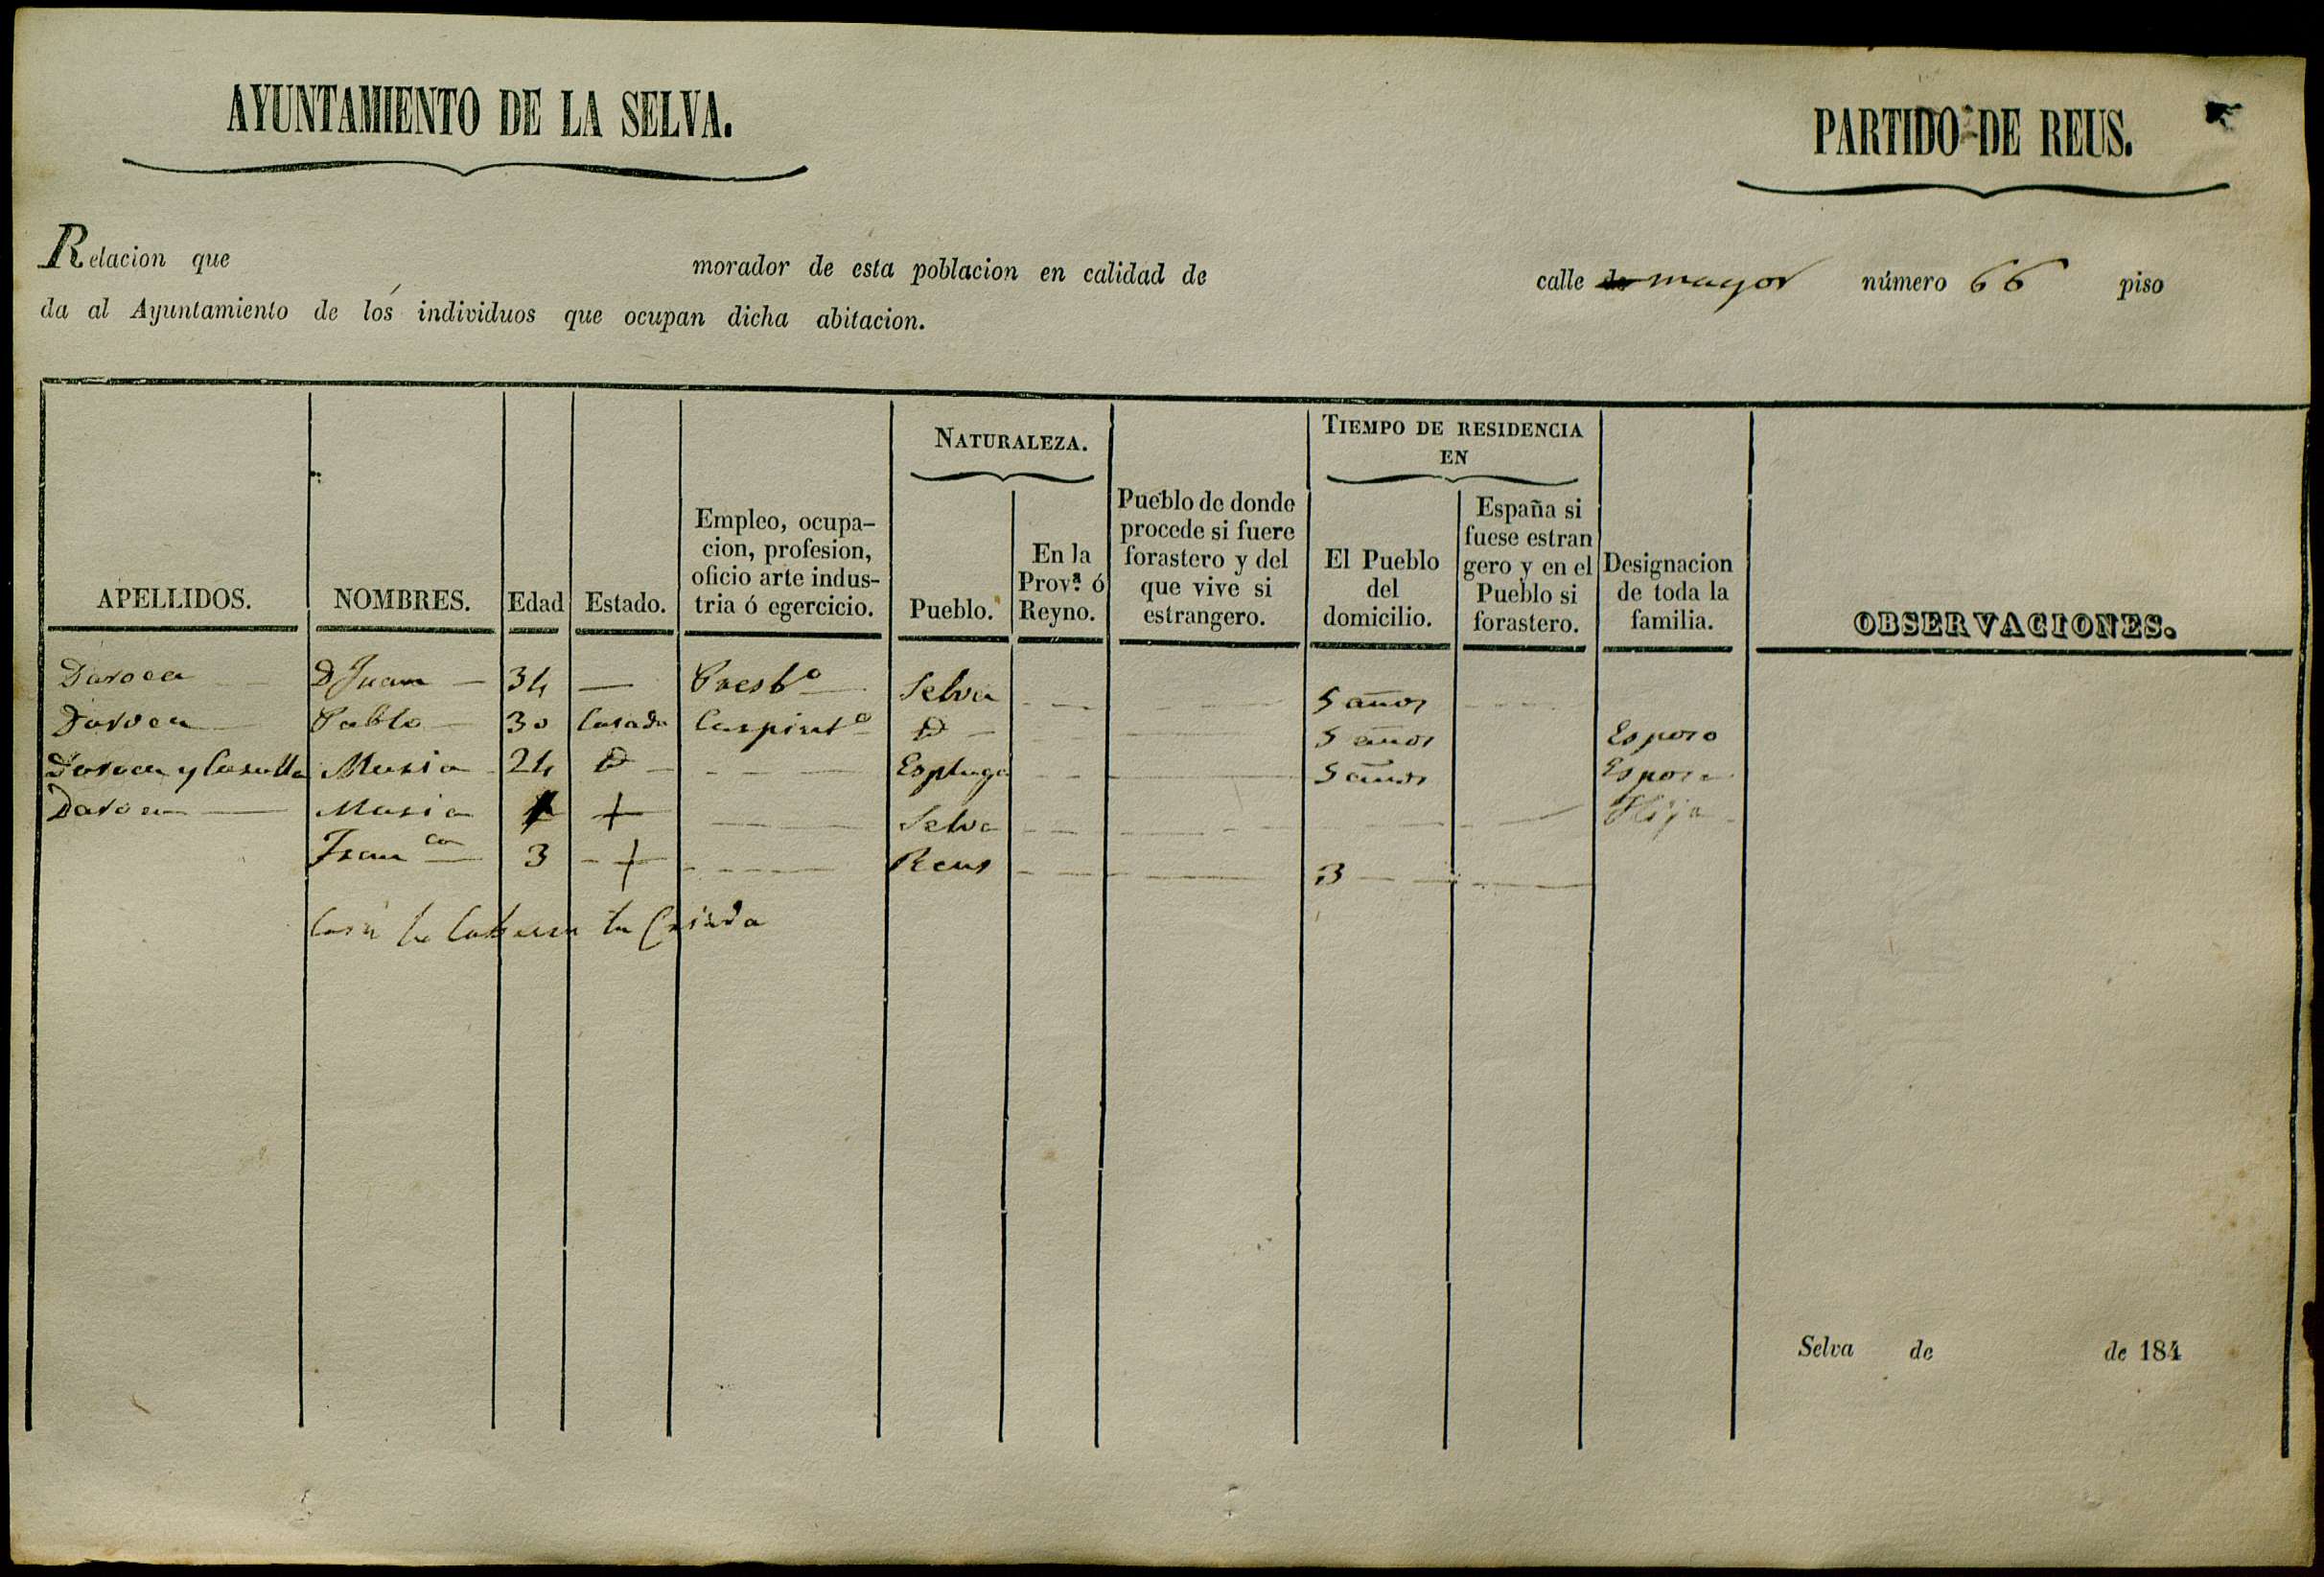 AYUNTAMIENTO DE LA SELVA.
PARTIDO DE REUS.
Relacion que morador de esta poblacion en calidad de calle de mayor número 66 piso
da al Ayuntamiento de los individuos que ocupan dicha abitacion.
NATURALEZA.
TIEMPO DE RESIDENCIA
EN
APELLIDOS.
NOMBRES.
Edad
Estado.
Empleo, ocupa-
cion, profesion,
oficio arte indus-
tria ó egercicio.
Pueblo.
En la
Prov.ª ó
Reyno.
Pueblo de donde
procede si fuere
forastero y del
que vive si
estrangero.
El Pueblo
del
domicilio.
España si
fuese estran
gero y en el
Pueblo si
forastero.
Designacion
de toda la
familia.
OBSERVACIONES.
Daroca — D Juan — 34 — Presbº Selva 5 años
Daroca — Pablo — 30 Casado Carpintº D — 5 años Esposo
Daroca y Maria 24 D — Espluga 5 años Esposa
Daroca — Maria + Selva Hija
Franca 3 + Reus 3
la Criada
Selva de de 184